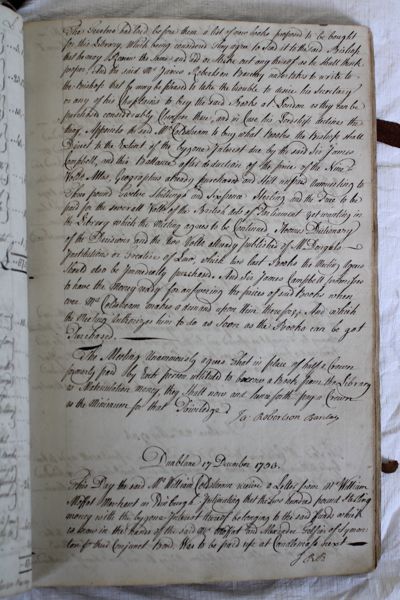 The Trustees had laid before them a list of new books proposed to be bought
for this Library, which being considered they agree to send it to the said Bishop
that he may Renew the same, and add or strike out any thereof as he shall think
proper, And the said Mr James Robertson Barclay undertakes to write to
the Bishop that he may be pleased to take the trouble to desire his Secretary
or any of his Chaplains to buy the said Books at London as they can be
purchased considerably Cheaper there, and in case his Lordship declines the
thing, Appoints the said Mr Coldstream to buy what Books the Bishop shall
Direct to the Extent of the bygone Interest due by the said Sir James
Campbell, and this Ballance after deduction of the price of the Nine
Volls Atlas Geographus already purchased and still unpaid amounting to
Three pound Twelve Shillings and Sixpence Sterling and the Price to be
paid for the severall Volls of the British Acts of Parliament yet wanting in
the Library which the Meeting agrees to be Continued, Homes Dictionary
of the Decisions and the two Volls already published of McDougals
Institutions or Practice of Law, which two last Books the Meeting Agrees
should also be immediatly purchased. And Sir James Campbell
to have the Money ready for answering the prices of said Books when
ever Mr Coldstream makes a demand upon him therefor, And which
the Meeting Authorizes him to do as soon as the Books can be got
Purchased.
The Meeting Unanimously agree that in place of half a Crown
formerly paid by each person intitled to borrow a Book from the Library
as Matriculation money, they shall now and hence forth pay a Crown
as the Minimum for that Priviledge
Ja: Robertson Barclay
Dunblane 17 December 1753.
This Day the said Mr William Coldstream receive a Letter from Mr William
Moffat Merchant in Edinburgh Intimating that the two hundred pound Sterling
money with the bygone Interest thereof belonging to the said Funds which
is now in the hands of the said Mr Moffat and Alexander
and their Conjunct Bond Was to be paid up at Candlemass next
J R B